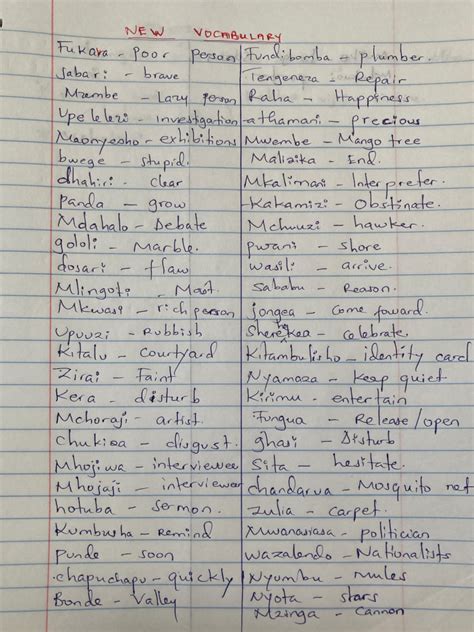 NEW VOCABULARY
Fukara - poor person
Jabari - brave
Mzembe - Lazy person
Upelelezi - investigation
Maonyesho - exhibitions
bwege - stupid.
dhahiri - clear
Panda - grow
Mdahalo - Debate
gololi - Marble.
dosari - flaw
Mlingoti - Mast.
Mkwasi - rich person
Upuuzi - Rubbish
Kitalu - courtyard
Zirai - Faint
Kera - disturb
Mchoraji - artist.
Chukiza - disgust.
Mhojiwa - interviewee
Mhojaji - interviewer
hotuba - sermon.
Kumbusha - Remind
punde - soon
chapuchapu - quickly
Bonde - Valley
Fundi bomba - plumber.
Tengeneza - Repair
Raha - Happiness
athamani - precious
Mwembe - Mango tree
Malizika - End.
Mkalimani - Interpreter.
Kakamizi - Obstinate.
Mchuuzi - hawker.
pwani - shore
wasili - arrive.
Sababu - Reason.
jongea - Come foward.
Sherehekea - celebrate.
Kitambulisho - identity card
Nyamaza - Keep quiet
Kirimu - entertain
Fungua - Release/open
ghasi - Disturb
Sita - hesitate.
chandarua - Mosquito net
Zulia - carpet.
Mwanasiasa - politician
wazalendo - Nationalists
Nyumbu - Mules
Nyota - stars
Mzinga - Cannon